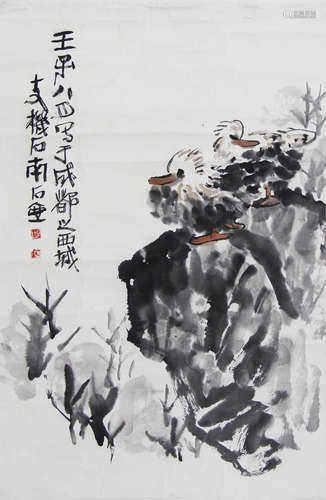 壬午八月写于成都之西城
支机石南石画